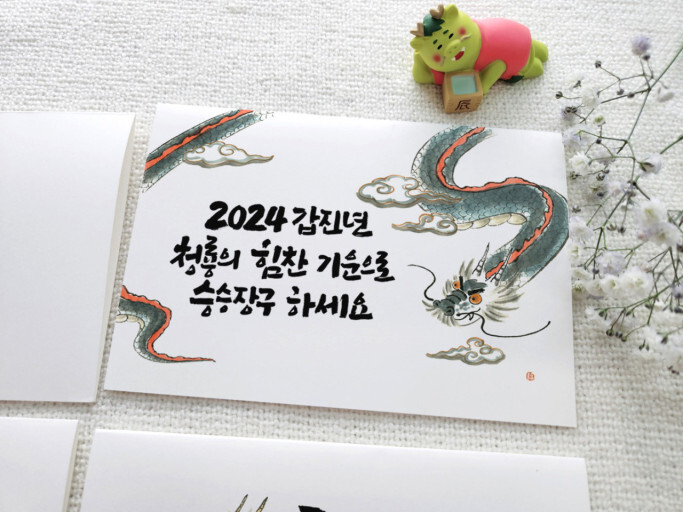 辰
2024 갑진년
청룡의 힘찬 기운으로
승승장구 하세요